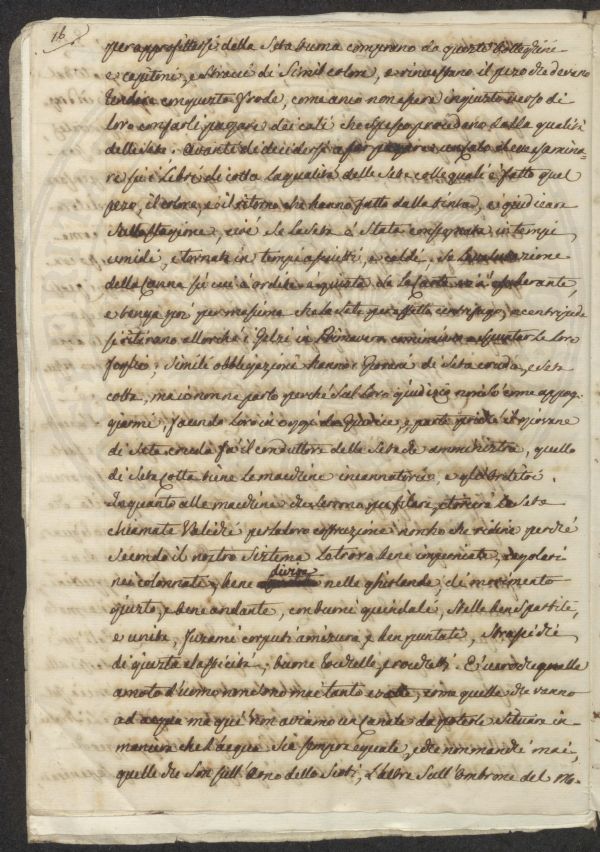 16.
per approfittarsi della Seta buona comprano da questi
e capitoni, e stracci di Simil colore, e rimessano il pezo che devano
rendere con questa frode, come anco non essere ingiusto verso di
loro con farli pagare dei cali che Spesso procedano dalla qualità
delle Sete. Avanti di decidersi a far pagare un calo deve esamina=
re su i Libri di cotta la qualità delle Sete colle quali è fatto quel
pezo, il colore, e il ritorno che hanno fatto dalla tinta, e giudicare
Sulla Stagione, cioè Se la Seta è Stata consegnata in tempi
umidi, e tornata in tempi asciutti, e caldi. Se la
della Canna Su cui à ordito è giusta
e tenga poi per massima che la Seta per effetto
si ritirano allorché i Gelsi in Primavera cominciano a Spuntar le loro
foglie; Simili obbligazioni hanno i Giovani di Seta cruda, e Seta
cotta, ma io non ne parlo perché Sul loro giudizio non Si deve appog=
giarmi, facendo loro in oggi da Giudice, e parte perché il giovane
di Seta cruda fà il conduttore delle Sete che amministra, quello
di Seta cotta tiene le macchine incannatorie, e gli Orditoi.
In quanto alle macchine che servono per filare, e torcere le Sete
chiamate Valichi per la loro costruzione non ho che ridire perché
Secondo il nostro Sistema la trovo bene imperniate, regolari
nei colonnati, bene divise nelle ghirlande, di movimento
giusto, e bene andante, con buone guindale, Stelle ben Spartite,
e unite, fusami corputi a misura, e ben puntati, Strafichi
di giusta elasticità; buone rochelle, e rochetti. È vero che quelle
a moto d'uomo non sono mai tanto esatte, come quelle che vanno
ad acqua ma qui non abbiamo un canale da poterle Situare in
maniera che l'acqua Sia Sempre eguale, e che non manchi mai,
quelle che Son Sull'Arno dello Scoti, l'altre Sull'Ombrone del No=